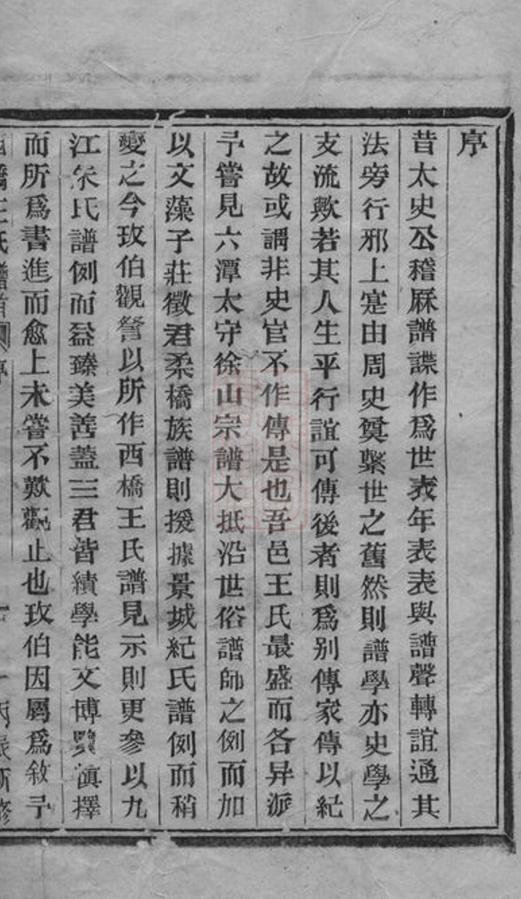 序
昔太史公稽厤譜諜作爲世表年表表與譜聲轉誼通其
法旁行邪上寔由周史奠繫世之舊然則譜學亦史學之
支流歟若其人生平行誼可傳後者則爲别傳家傳以紀
之故或謂非史官不作傳是也吾邑王氏最盛而各异派
予嘗見六潭太守徐山宗譜大抵沿世俗譜師之例而加
以文藻子莊徵君柔橋族譜則援據景城紀氏譜例而稍
變之今玫伯觀詧以所作西橋王氏譜見示則更參以九
江朱氏譜例而益臻美善蓋三君皆績學能文博覽愼擇
而所爲書進而愈上未嘗不歎觀止也玫伯因屬爲敘予
橋王氏譜首 序